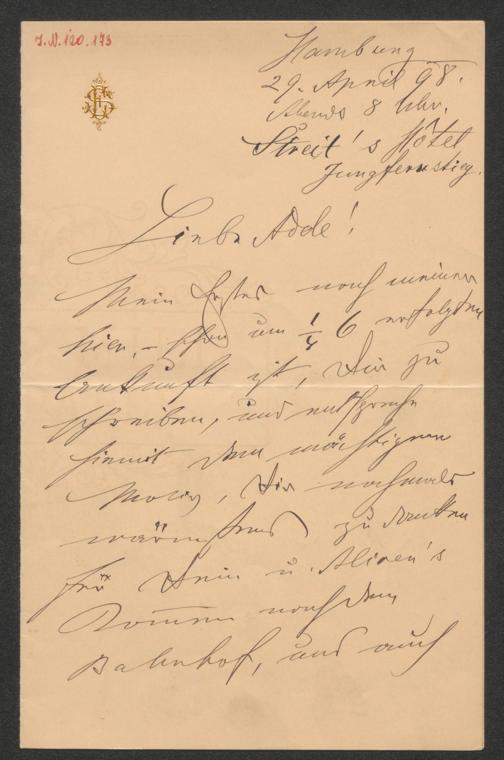 J.N. 120.173
Hamburg
29. April 98.
Abends 8 Uhr.
Streit's Hôtel
Jungfernstieg.
Liebe Adele!
Mein Erstes nach meiner
hier, – schon um 1/4 6 erfolgten
Ankunft ist, Dir zu
schreiben, und entspreche
hiemit dem mächtigen
Drang, Dir nochmals
wärmstens zu danken
für Dein u. Alicen's
Kommen nach dem
Bahnhof, und auch